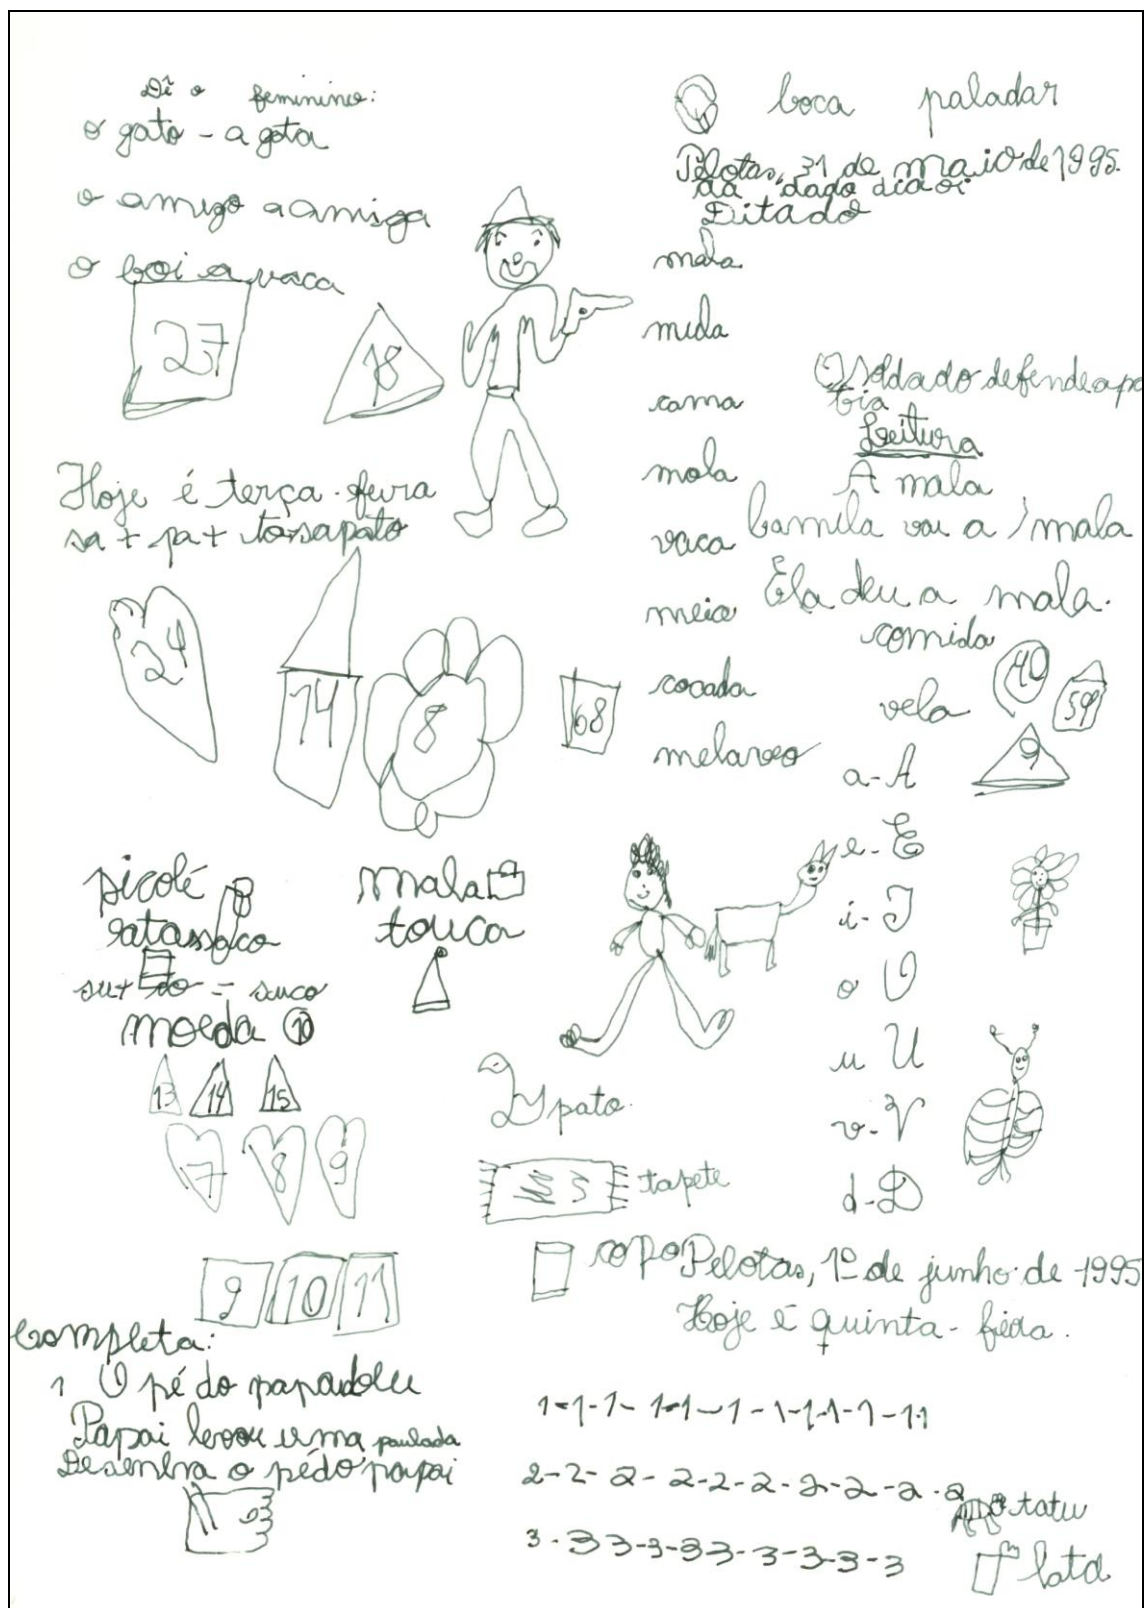 Dê o feminino:
o gato - a gata
o amigo a amiga
o boi a vaca
27
18
Hoje é terça-feira
sa + pa + to=sapato
24
14
8
68
picolé
mala
touca
su+ = suco
moeda 10
13 14 15
7 8 9
9 10 11
Completa:
1 O pé do papai doeu
Papai levou uma paulada
Desenha o pé do papai
boca paladar
Pelotas, 31 de maio de 1995.
Ditado
mala
muda
cama
mola
vaca
meia
cocada
O soldado defende a pa
tria
Leitura
A mala
Camila vai a mala
Ela deu a mala.
comida
vela
40
59
9
a-A
e-E
i-I
o O
u U
v-V
d-D
pato.
tapete
copo
Pelotas, 1º de junho de 1995
Hoje é quinta-feira.
1-1-1-1-1-1-1-1-1-1-1-1
2-2-2-2-2-2-2-2-2-2-2
3-3 3-3-3 3-3-3-3-3
tatu
lata